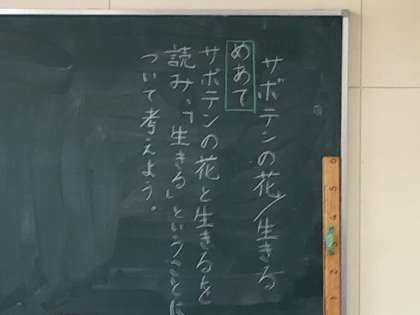 サボテンの花/生きる
めあて
サボテンの花と生きるを
読み、「生きる」ということに
ついて考えよう。